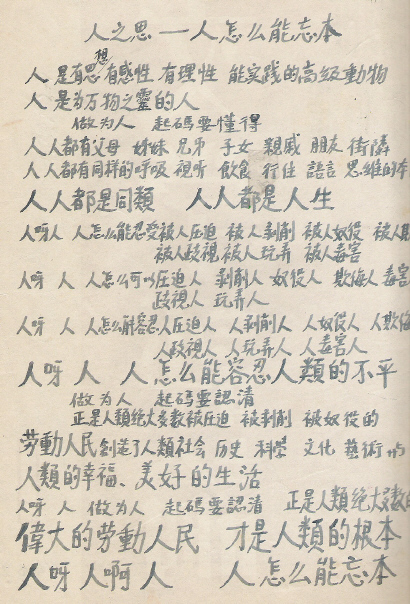 人之思——人怎么能忘本
人是有思想有感性 有理性 能实践的高级動物
人是为万物之靈的人
做为人 起碼要懂得
人人都有父母 姊妹 兄弟 子女 親戚 朋友 街隣
人人都有同样的呼吸 視听 飲食 行住 語言 思维的本
人人都是同類 人人都是人生
人呀人 人怎么能忍受被人压迫 被人剥削 被人奴役 被人欺
被人歧視 被人玩弄 被人毒害
人呀 人 人怎么可以压迫人 剥削人 奴役人 欺侮人 毒害
歧視人 玩弄人
人呀 人 人怎么能容忍人压迫人 人剥削人 人奴役人 人欺侮
人歧視人 人玩弄人 人毒害人
人呀 人 人 怎么能容忍人類的不平
做为人 起碼要認清
正是人類绝大多数被压迫 被剥削 被奴役的
劳動人民創造了人類社会 历史 科学 文化 藝術
人類的幸福、美好的生活
人呀 人 做为人 起碼要認清 正是人類绝大多数的
偉大的劳動人民 才是人類的根本
人呀 人啊 人 人怎么能忘本